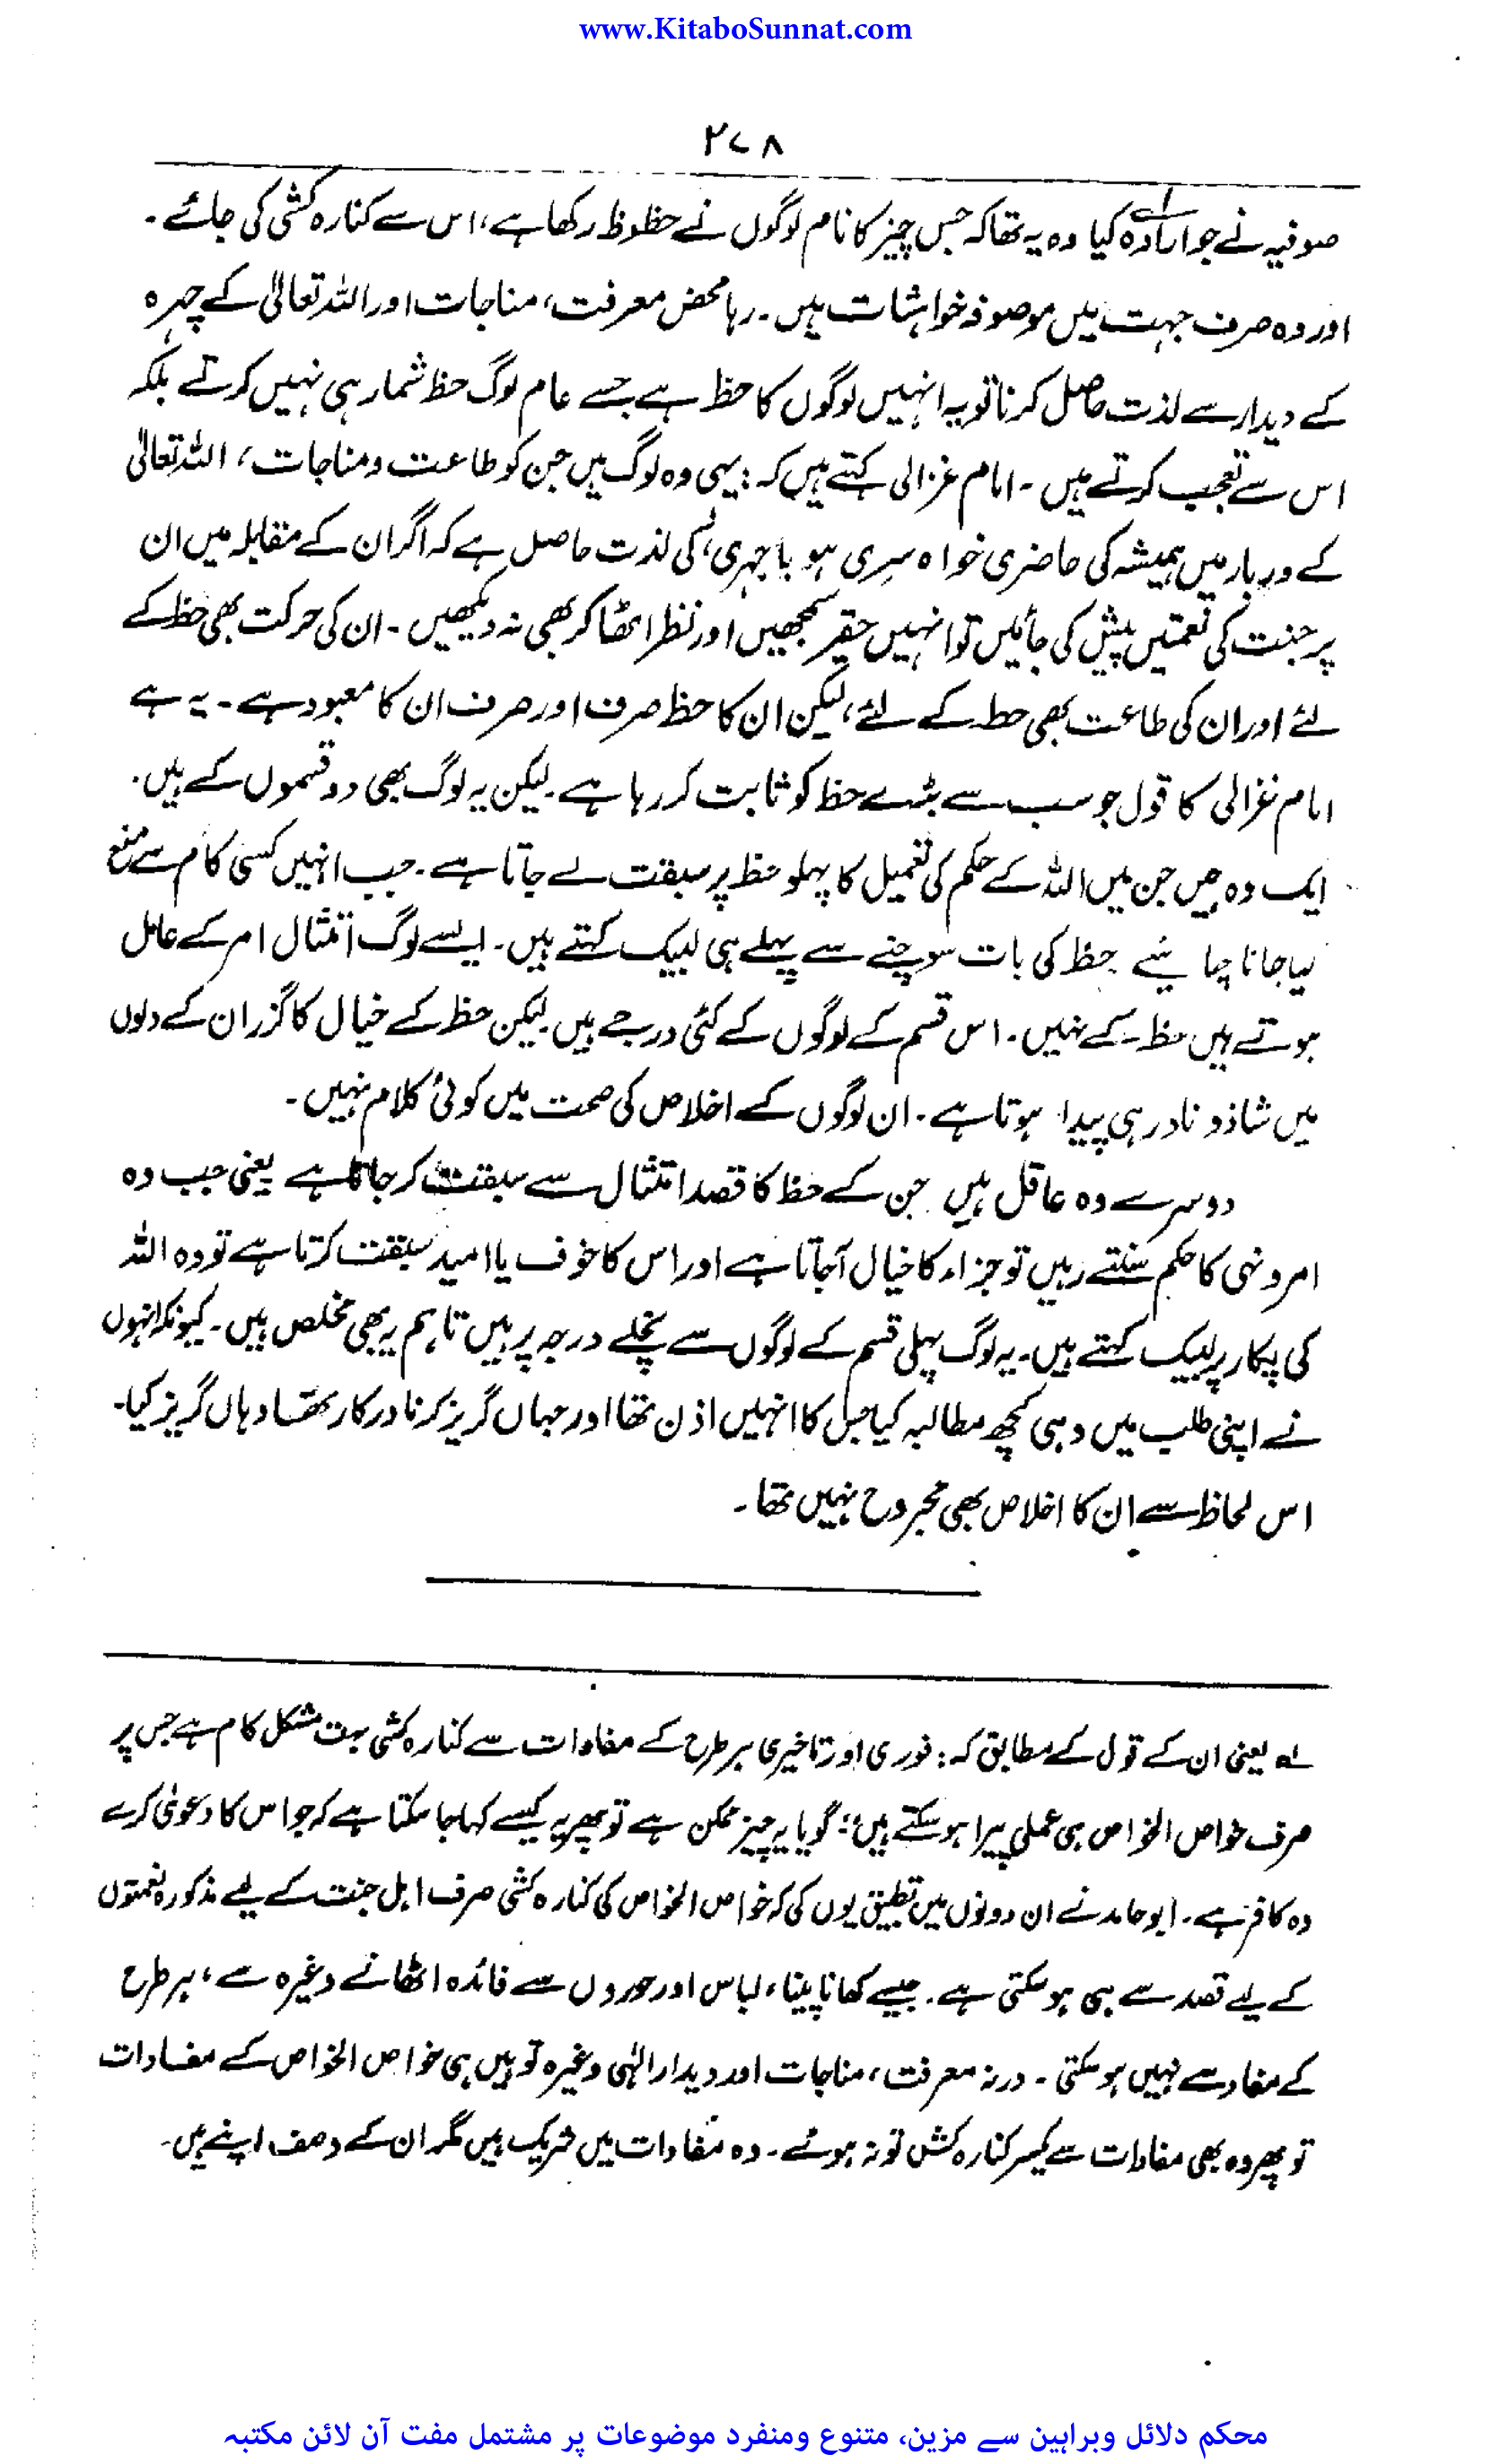 www.KitaboSunnat.com
۲۷۸
صوفیہ نے جو ارادہ کیا وہ یہ تھا کہ جس چیز کا نام لوگوں نے حظوظ رکھا ہے، اس سے کنارہ کشی کی جائے۔
اور وہ صرف جہت میں موصوفہ خواہشات ہیں۔ رہا محض معرفت، مناجات اور اللہ تعالیٰ کے چہرہ
کے دیدار سے لذت حاصل کرنا تو یہ انہیں لوگوں کا حظ ہے جسے عام لوگ حظ شمار ہی نہیں کرتے بلکہ
اس سے تعجب کرتے ہیں۔ امام غزالی کہتے ہیں کہ: یہی وہ لوگ ہیں جن کو طاعت ومناجات، اللہ تعالیٰ
کے دربار میں ہمیشہ کی حاضری خواہ سری ہو یا جہری، کی لذت حاصل ہے کہ اگر ان کے مقابلہ میں ان
پر جنت کی نعمتیں پیش کی جائیں تو انہیں حقیر سمجھیں اور نظر اٹھا کر بھی نہ دیکھیں۔ ان کی حرکت بھی حظ کے
لئے اور ان کی طاعت بھی حظ کے لئے، لیکن ان کا حظ صرف اور صرف ان کا معبود ہے۔ یہ ہے
امام غزالی کا قول جو سب سے بڑے حظ کو ثابت کر رہا ہے۔ لیکن یہ لوگ بھی دو قسموں کے ہیں۔
ایک وہ ہیں جن میں اللہ کے حکم کی تعمیل کا پہلو حظ پر سبقت لے جاتا ہے۔ جب انہیں کسی کام سے منع
کیا جانا چاہئیے حظ کی بات سوچنے سے پہلے ہی لبیک کہتے ہیں۔ ایسے لوگ امتثال امر کے عامل
ہوتے ہیں حظ کے نہیں۔ اس قسم کے لوگوں کے کئی درجے ہیں لیکن حظ کے خیال کا گزر ان کے دلوں
میں شاذ و نادر ہی پیدا ہوتا ہے۔ ان لوگوں کے اخلاص کی صحت میں کوئی کلام نہیں۔
دوسرے وہ عاقل ہیں جن کے حظ کا قصد امتثال سے سبقت کر جاتا ہے یعنی جب وہ
امر و نہی کا حکم سنتے ہیں تو جزاء کا خیال آجاتا ہے اور اس کا خوف یا امید سبقت کرتا ہے تو وہ اللہ
کی پکار پر لبیک کہتے ہیں۔ یہ لوگ پہلی قسم کے لوگوں سے نچلے درجہ پر ہیں تاہم یہ بھی مخلص ہیں۔ کیونکہ انہوں
نے اپنی طلب میں وہی کچھ مطالبہ کیا جس کا انہیں اذن تھا اور جہاں گریز کرنا درکار تھا وہاں گریز کیا۔
اس لحاظ سے ان کا اخلاص بھی مجروح نہیں تھا۔
لہ یعنی ان کے قول کے مطابق کہ: فوری اور تاخیری ہر طرح کے مفادات سے کنارہ کشی بہت مشکل کام ہے جس پر
صرف خواص الخواص ہی عملی پیرا ہو سکتے ہیں؛ گویا یہ چیز ممکن ہے تو پھر یہ کیسے کہا جا سکتا ہے کہ جو اس کا دعویٰ کرے
وہ کافر ہے۔ ابو حامد نے ان دونوں میں تطبیق یوں کی کہ خواص الخواص کی کنارہ کشی صرف اہل جنت کے لیے مذکورہ نعمتوں
کے لیے قصد سے ہی ہو سکتی ہے۔ جیسے کھانا پینا، لباس اور حوروں سے فائدہ اٹھانے وغیرہ سے، ہر طرح
کے مفاد سے نہیں ہو سکتی۔ ورنہ معرفت، مناجات اور دیدار الٰہی وغیرہ تو ہیں ہی خواص الخواص کے مفادات
تو پھر وہ بھی مفادات سے یکسر کنارہ کش تو نہ ہوئے۔ وہ مفادات میں شریک ہیں مگر ان کے وصف اپنے ہیں۔
محکم دلائل وبراہین سے مزین، متنوع ومنفرد موضوعات پر مشتمل مفت آن لائن مکتبہ